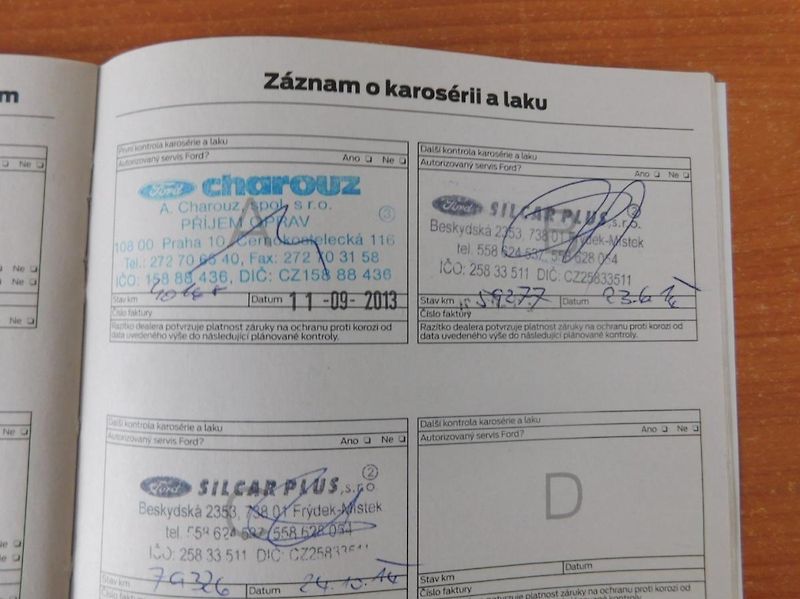 m
Záznam o karosérii a laku
Ne
Ne
Ne
Ne
První kontrola karosérie a laku
Autorizovaný servis Ford? Ano Ne
A
Ford charouz
A. Charouz, spol. s r.o. 3
PŘÍJEM OPRAV
108 00 Praha 10, Černokostelecká 116
Tel.: 272 70 65 40, Fax: 272 70 31 58
IČO: 158 88 436, DIČ: CZ158 88 436
Stav km Datum 11-09-2013
Číslo faktury
Razítko dealera potvrzuje platnost záruky na ochranu proti korozi od
data uvedeného výše do následující plánované kontroly.
Další kontrola karosérie a laku
Autorizovaný servis Ford?
Ano Ne
Ford SILCAR PLUS, s.r.o. 3
Beskydská 2353, 738 01 Frýdek-Místek
tel. 558 624 537, 558 628 054
IČO: 258 33 511 DIČ: CZ25833511
Stav km 59277 Datum 23.6.14
Číslo faktury
Razítko dealera potvrzuje platnost záruky na ochranu proti korozi od
data uvedeného výše do následující plánované kontroly.
Ne
Ne
Ne
Ne
Další kontrola karosérie a laku
Autorizovaný servis Ford? Ano Ne
C
2
Ford SILCAR PLUS, s.r.o.
Beskydská 2353, 738 01 Frýdek-Místek
tel. 558 624 537, 558 628 054
IČO: 258 33 511 DIČ: CZ25833511
Stav km 79326 Datum 24.10.14
Číslo faktury
Další kontrola karosérie a laku
Autorizovaný servis Ford? Ano Ne
D
Stav km Datum
Číslo faktury